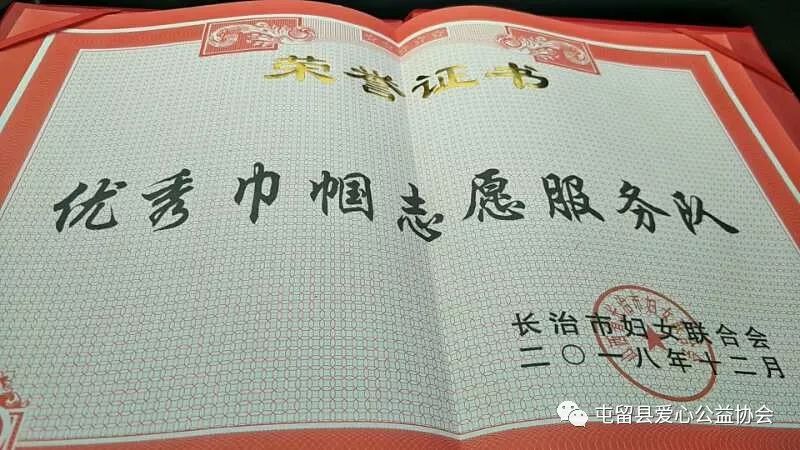 荣誉证书
优秀巾帼志愿服务队
长治市妇女联合会
二〇一八年十二月
屯留县爱心公益协会